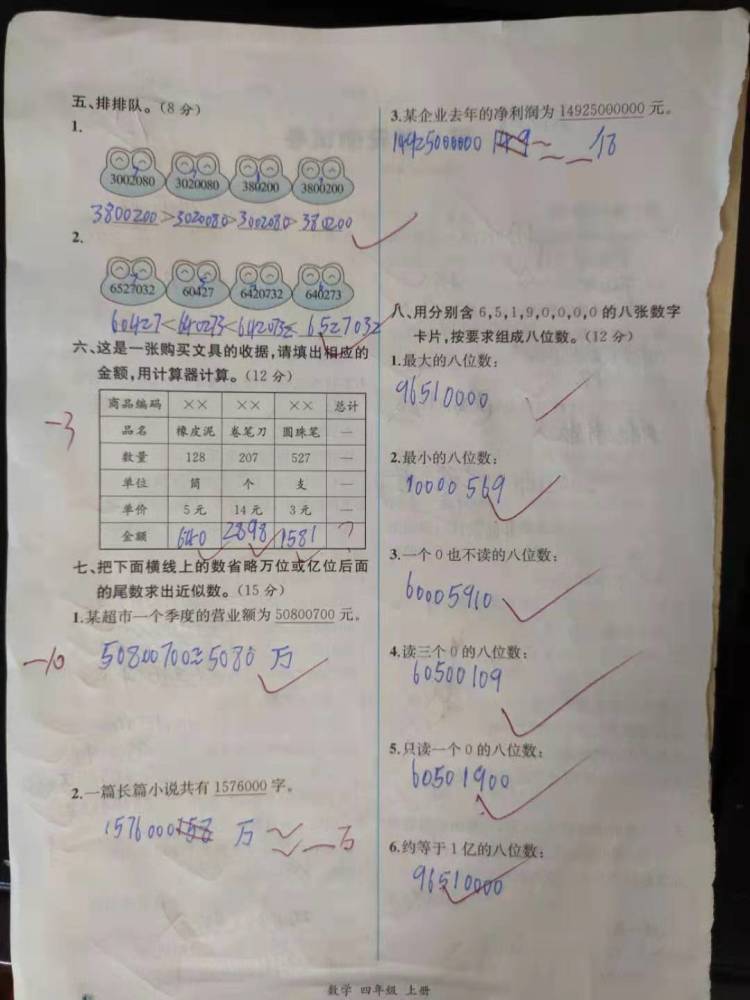 五、排排队。(8分)
1.
3002080 3020080 380200 3800200
3800200>3020080>3002080>380200
2.
6527032 60427 6420732 640273
60427<640273<6420732<6527032
六、这是一张购买文具的收据,请填出相应的
金额,用计算器计算。(12分)
-3
商品编码 ×× ×× ×× 总计
品名 橡皮泥 卷笔刀 圆珠笔 —
数量 128 207 527 —
单位 筒 个 支 —
单价 5元 14元 3元 —
金额 640 2898 1581 ?
七、把下面横线上的数省略万位或亿位后面
的尾数求出近似数。(15分)
1.某超市一个季度的营业额为50800700元。
-10
50800700≈5080万
2.一篇长篇小说共有1576000字。
1576000 158 万 ≈__万
3.某企业去年的净利润为14925000000元。
14925000000 149 ≈__亿
八、用分别含6,5,1,9,0,0,0,0的八张数字
卡片,按要求组成八位数。(12分)
1.最大的八位数:
96510000
2.最小的八位数:
10000569
3.一个0也不读的八位数:
60005910
4.读三个0的八位数:
60500109
5.只读一个0的八位数:
60501900
6.约等于1亿的八位数:
96510000
数学 四年级 上册